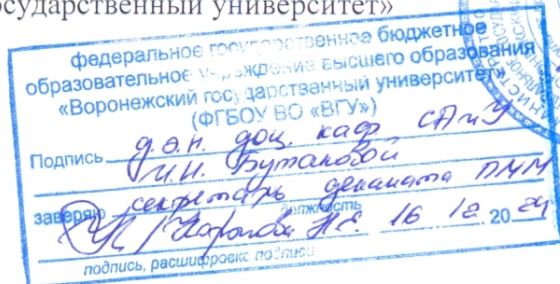 осударственный университет»
федеральное государственное бюджетное
образовательное учреждение высшего образования
«Воронежский государственный университет»
(ФГБОУ ВО «ВГУ»)
Подпись доц. каф САиУ
заверяю секретарь деканата ПММ
должность
16 12 2024
подпись, расшифровка подписи